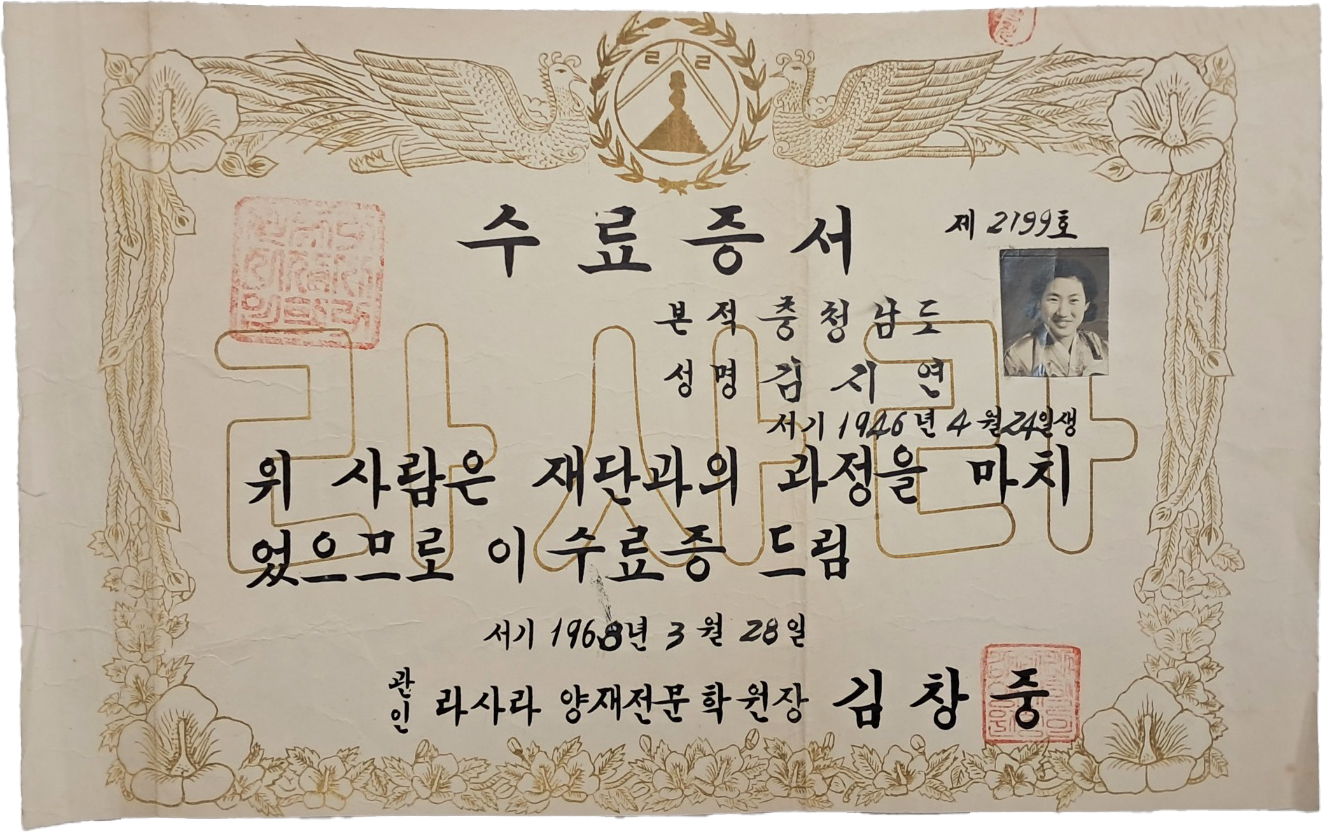 수료증서
제 2199호
본적 충청남도
성명 김시연
서기 1946년 4월 24일생
라사라
위 사람은 재단과의 과정을 마치
었으므로 이 수료증 드림
서기 1968년 3월 28일
관인 라사라 양재전문학원장 김창중